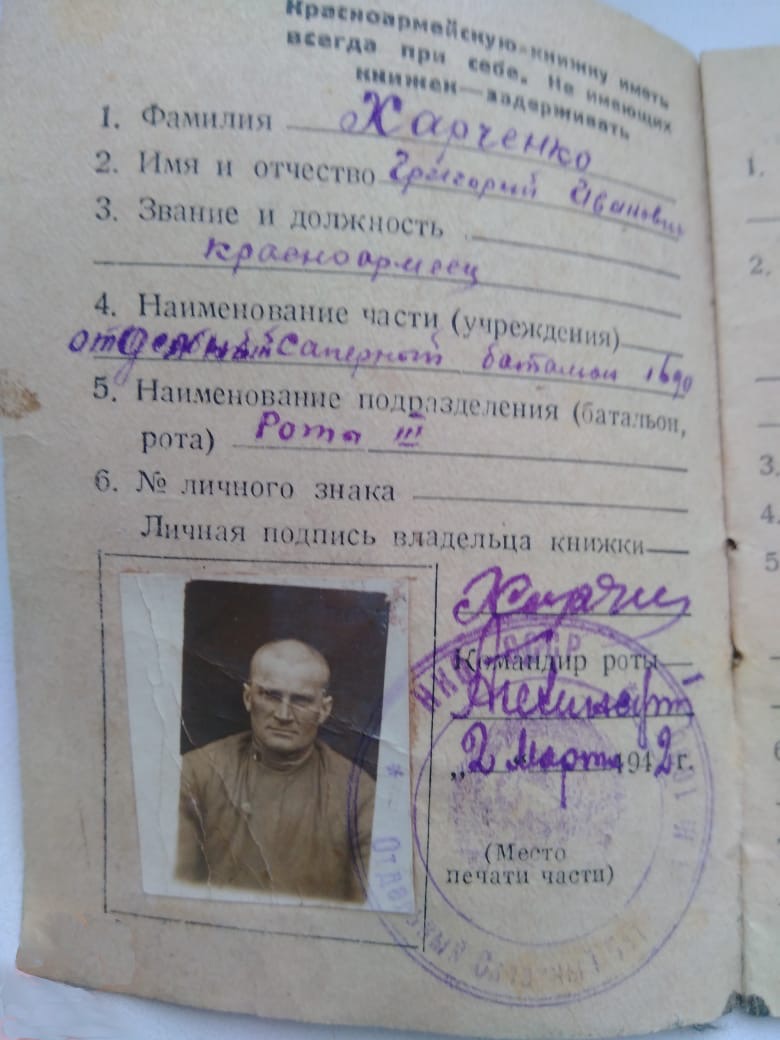 Красноармейскую книжку иметь
всегда при себе. Не имеющих
книжек—задерживать
1. Фамилия Харченко
2. Имя и отчество Григорий Иванович
3. Звание и должность
красноармеец
4. Наименование части (учреждения)
отдельный саперный батальон
5. Наименование подразделения (батальон,
рота) Роты III
6. № личного знака
Личная подпись владельца книжки
Командир роты
„2 Марта 1942 г.
(Место
печати части)
НКО СССР
* ОТДЕЛЬНЫЙ САПЕРНЫЙ
1.
2.
3.
4.
5
6